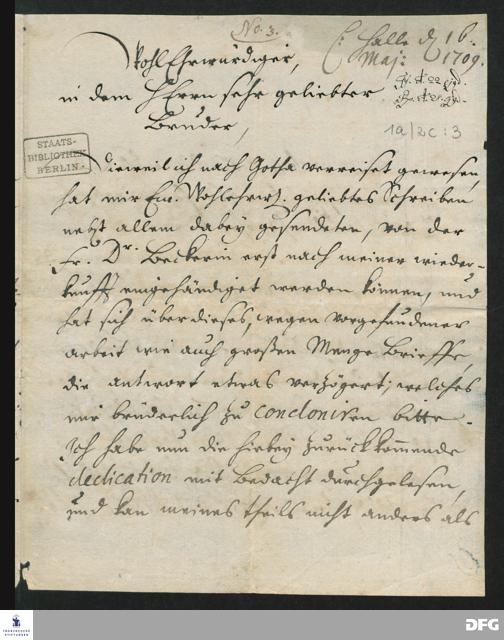 No. 3.
C: Halle d 16.
Maj: 1709.
WohlEhrwürdiger,
in dem HErrn sehr geliebter
Bruder,
1a/2c:3
STAATS-
BIBLIOTHEK
BERLIN
Dieweil ich nach Gotha verreiset gewesen,
hat mir Ew. WohlEhrw. geliebtes Schreiben
nebst allem dabey gesendeten, von der
Fr. Dr. Beckerin erst nach meiner wieder-
kunfft eingehändiget werden können, und
hat sich über dieses, wegen vorgefundener
arbeit wie auch großen Menge Brieffe,
die antwort etwas verzögert; welches
mir brüderlich zu condoniren bitte.
Ich habe nun die hirbey zurück kommende
dedication mit Bedacht durchgelesen,
und kan meines theils nicht anders als
FRANCKESCHE
STIFTUNGEN
DFG